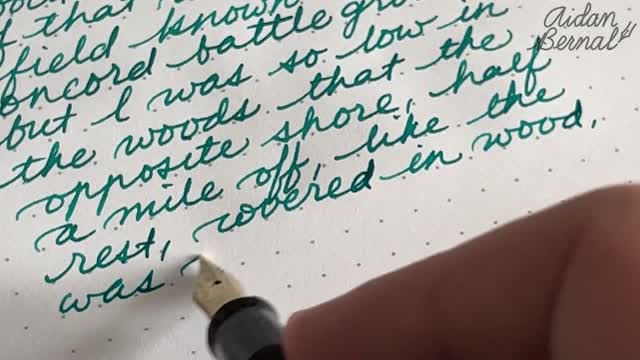 Aidan
Bernal
that
field known
oncord battle
but I was so low in
the woods that the
opposite shore, half
a mile off, like the
rest, covered in wood,
was